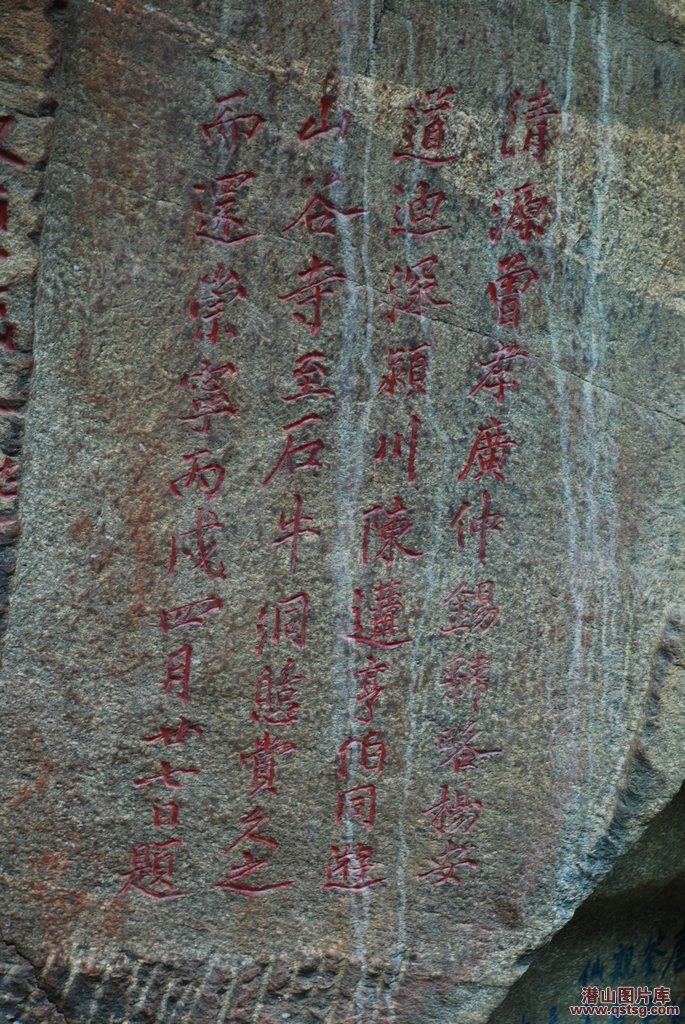 清源曾孝廣仲錫華路楊安
道迪深潁川陳遘亨伯同遊
山谷寺至石牛洞憩賞久之
而還崇寧丙戌四月廿七日題
潜山图片库
www.qstsg.com